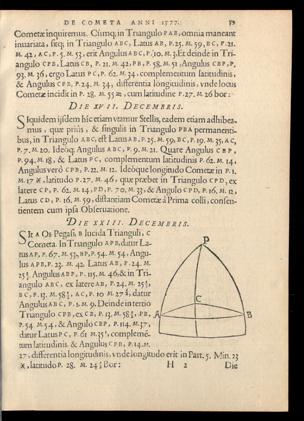 DE COMETA ANNI 1577. 59
Cometæ inquiremus. Cúmq; in Triangulo PAB, omnia maneant
inuariata, sitq; in Triangulo ABC, Latus AB, P. 25. M. 59, BC, P. 21.
M. 42, AC, P. 5. M. 53, erit Angulus ABC, P. 10. M. Et deinde in Tri-
angulo CPB, Latus CB, P. 21. M. 42, PB, P. 58. M. 51, Angulus CBP, P,
93. M. 36, ergo Latus PC, P. 62. M. 34. complementum latitudinis,
& Angulus CPB, P. 24. M. 34, differentia longitudinis, vnde locus
Cometæ incidit in P. 28. M. 55 cum latitudine P. 27. M. 26 bor:
DIE XVII. DECEMBRIS.
Siquidem ijsdem hîc etiam vtamur Stellis, eadem etiam adhibea-
mus, quæ priùs, & singulis in Triangulo PBA permanenti-
bus, in Triangulo ABC, est Latus AB, P. 25. M. 59, BC, P. 19. M. 35, AC,
P. 7. M. 20. Ideóq; Angulus ABC, P. 9. M. 21. Quare Angulus CBP,
P. 94. M. 18, & Latus PC, complementum latitudinis P. 62. M. 14,
Angulus verò CPB, P. 22. M. 12. Ideóque longitudo Cometæ in P. 1.
M. 17 latitudo P. 27. M. 46, quæ præbet in Triangulo CPD, ex
latere CP, P. 62. M. 14, PD, P. 70. M. 33, & Angulo CPD, P. 16. M. 12,
Latus CD, P. 16. M. 59, distantiam Cometæ à Prima colli, consen-
tientem cum ipsa Obseruatione.
DIE XXIII. DECEMBRIS.
Sit A Os Pegasi, B lucida Trianguli, C
Cometa. In Triangulo APB, datur La-
tus AP, P. 67. M. 53, BP, P. 54. M. 54, Angu-
lus APB, P. 23. M. 42. Latus AB, P. 24. M.
25½ Angulus ABP, P. 115. M. 46, & in Tri-
angulo ABC, ex latere AB, P. 24. M.
BC, P. 13. M. AC, P. 10 M. datur
Angulus ABC, P. 1. M. 9. Deinde in tertio
Triangulo CPB, ex CB, P. 13. M. PB,
P. 54. M. 54, & Angulo CBP, P. 114. M. 37,
datur Latus PC, P. 61. M. complemé-
tum latitudinis & Angulus CPB, P. 14. M.
27, differentia longitudinis, vnde longitudo erit in Part. 5. Min. 23
latitudo P. 28. M. Bor:
P
C
A
B
H 2 Die